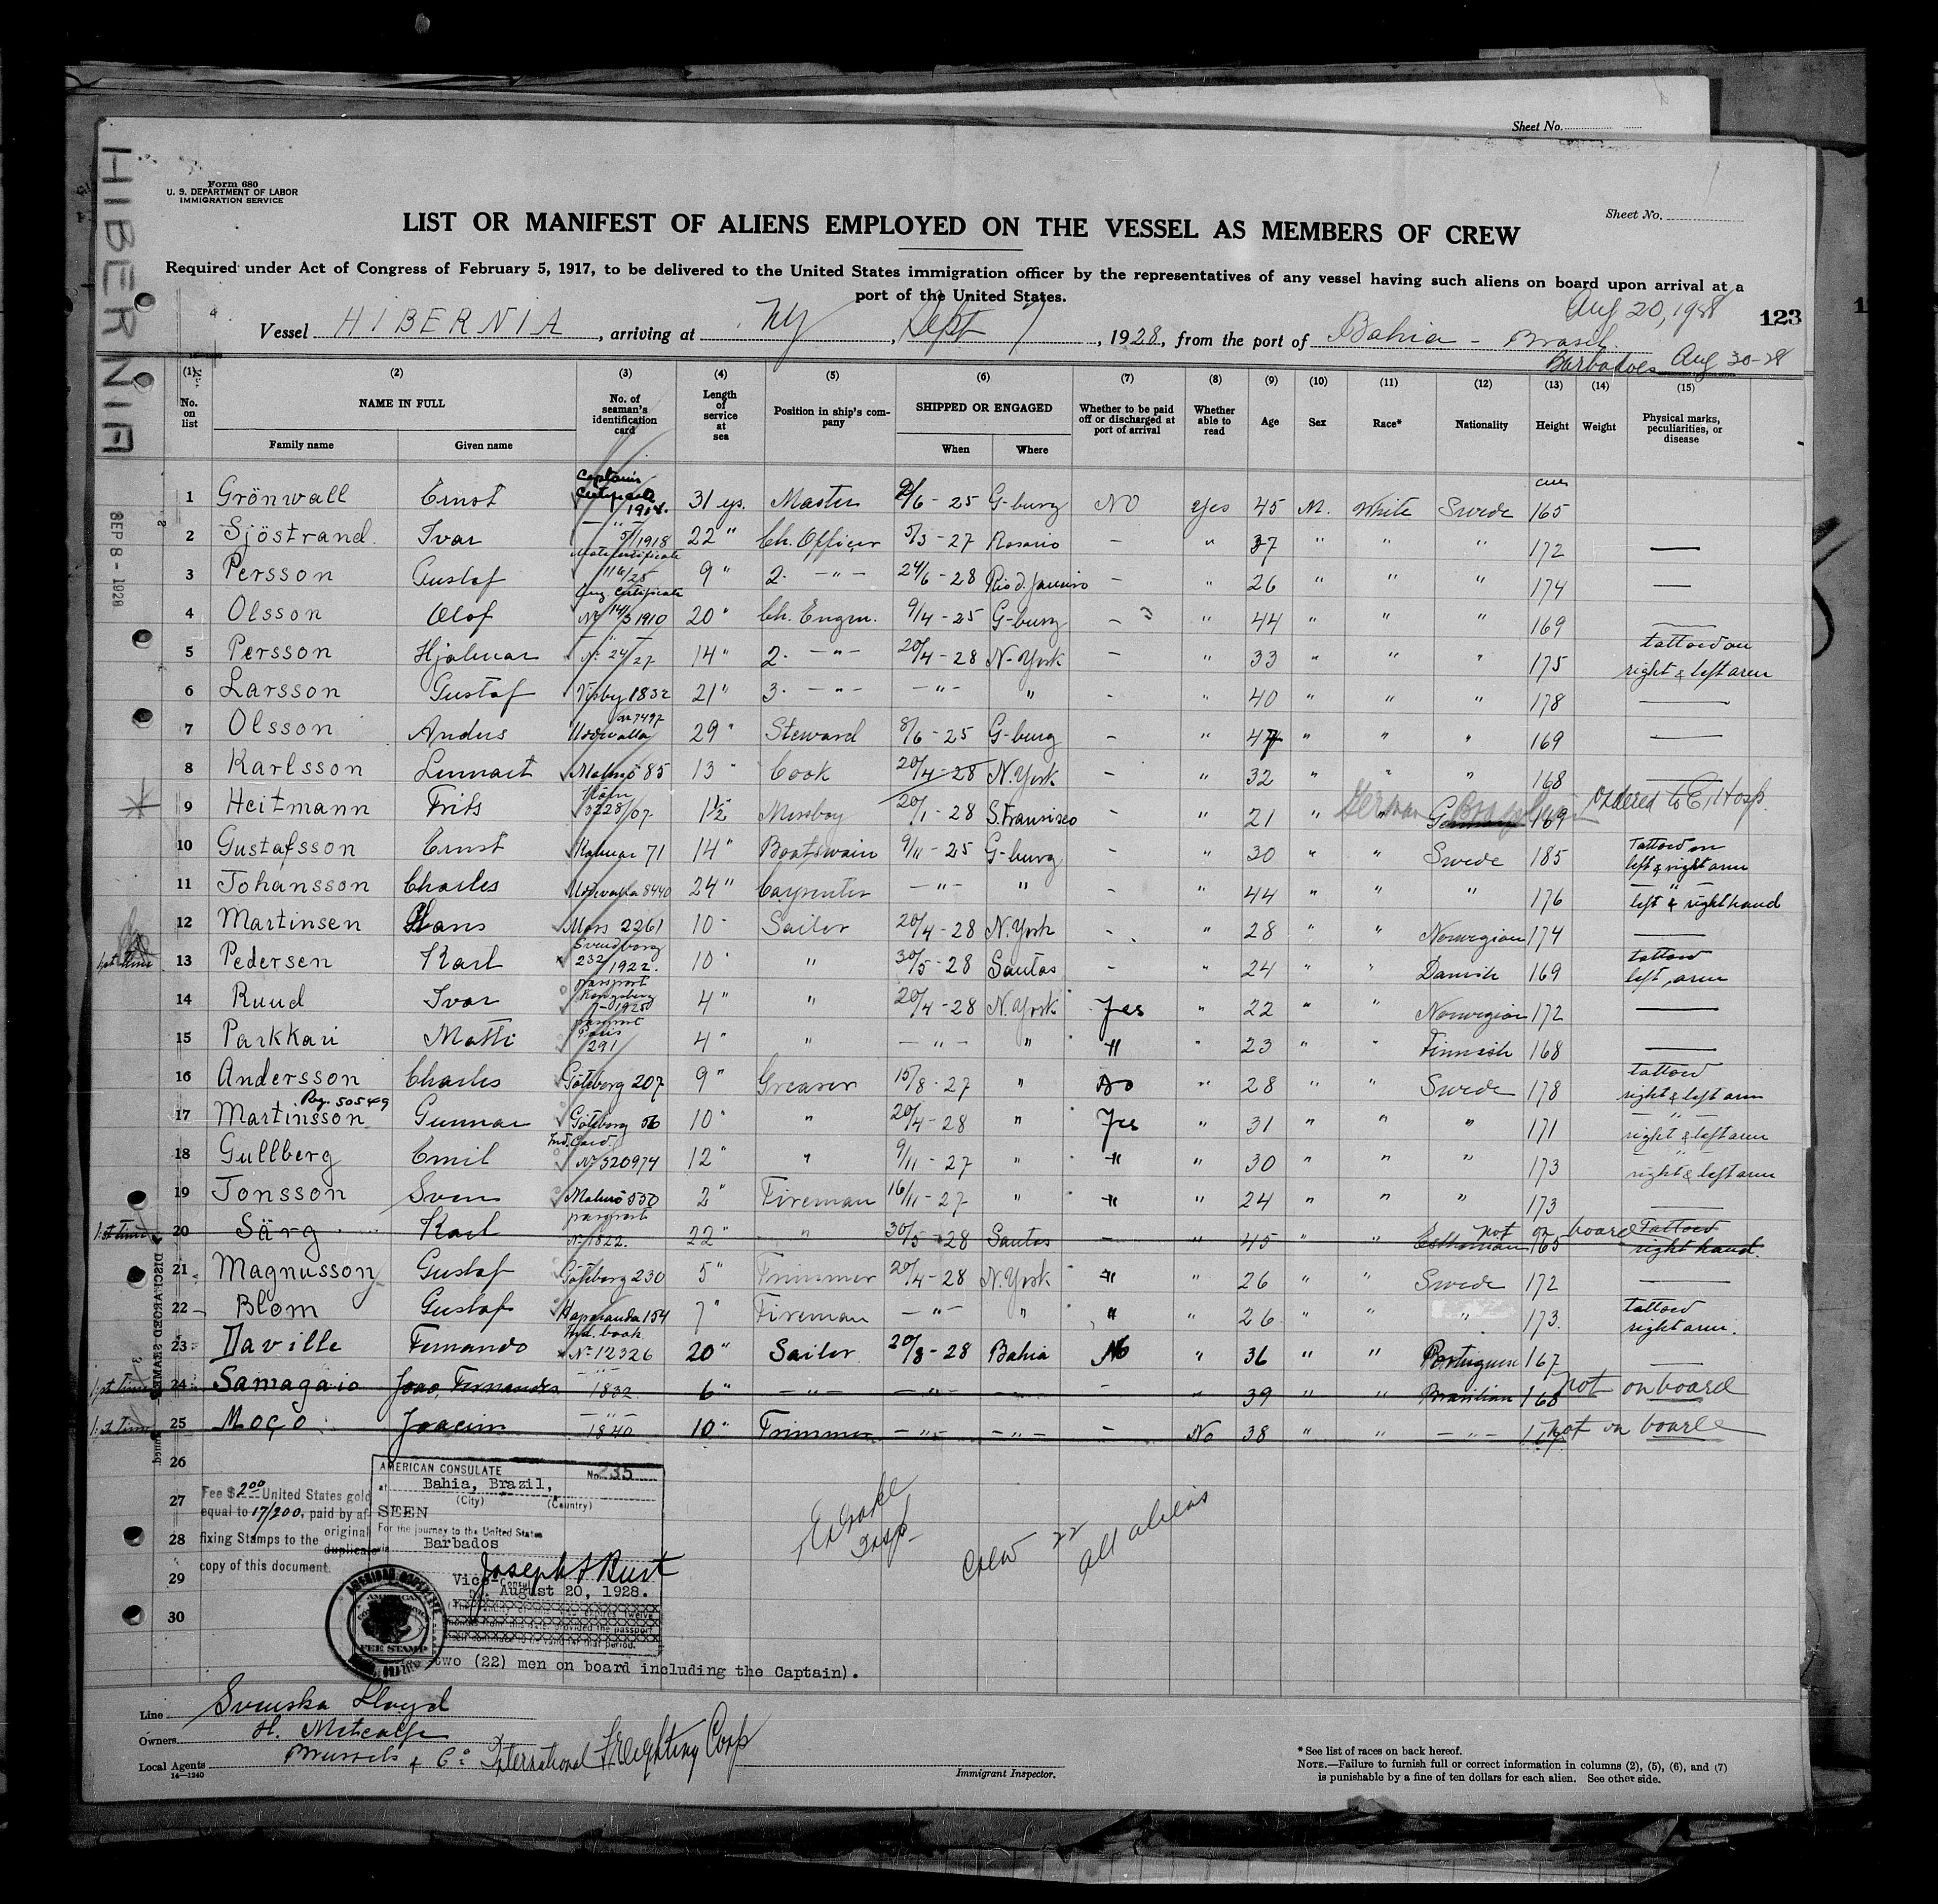 Sheet No.
HIBERNIA
SEP 8 - 1928
Form 680
U. S. DEPARTMENT OF LABOR
IMMIGRATION SERVICE
Sheet No.
LIST OR MANIFEST OF ALIENS EMPLOYED ON THE VESSEL AS MEMBERS OF CREW
Required under Act of Congress of February 5, 1917, to be delivered to the United States immigration officer by the representatives of any vessel having such aliens on board upon arrival at a
port of the United States.
Aug 20, 1928
123
Vessel HIBERNIA, arriving at NY, Sept 7, 1928, from the port of Bahia - Brasil.
Barbadoes Aug 30-28
(1) (2) (3) (4) (5) (6) (7) (8) (9) (10) (11) (12) (13) (14) (15)
No. on list NAME IN FULL Family name Given name No. of seaman's identification card Length of service at sea Position in ship's company SHIPPED OR ENGAGED When Where Whether to be paid off or discharged at port of arrival Whether able to read Age Sex Race* Nationality Height Weight Physical marks, peculiarities, or disease
1 Grönwall Ernst Captain's Certificate 31 ys. Master 6 - 25 G-burg NO Yes 45 M. White Swede 165
2 Sjöstrand Ivar 5/1918 22 " Ch. Officer 5/3 - 27 Rosario - " 37 " " " 172 —
3 Persson Gustaf Mate certificate 116/25 9 " 2. - " - 24/6 - 28 Rio d. Janeiro - " 26 " " " 174 —
4 Olsson Olof Eng. Certificate No 14/3 1910 20 " Ch. Engin. 9/4 - 25 G-burg - " 44 " " " 169 —
5 Persson Hjalmar No 24/27 14 " 2. - " - 20/4 - 28 N-York - " 33 " " " 175 tattoed on right & left arm
6 Larsson Gustaf Visby 1832 21 " 3. - " - - " - " - " 40 " " " 178 —
7 Olsson Anders Uddevalla 7497 29 " Steward 8/6 - 25 G-burg - " 47 " " " 169 —
8 Karlsson Lennart Malmö 85 13 " Cook 20/4 - 28 N. York - " 32 " " " 168 —
9 Heitmann Frits 3228/07. 1½ Messboy 20/1 - 28 S. Francisco - " 21 " German " German Brazilian 169 Ordered to E I Hosp.
10 Gustafsson Ernst Kalmar 71 14 " Boatswain 9/11 - 25 G-burg - " 30 " " Swede 185 Tattoed on left & right arm
11 Johansson Charles Uddevalla 8440 24 " Carpenter - " - " - " 44 " " " 176 - " - left & right hand
12 Martinsen Hans Moss 2261 10 " Sailor 20/4 - 28 N. York - " 28 " " Norwegian 174 —
1st time 13 Pedersen Karl Svendborg 232/1922. 10 " " 30/5 - 28 Santos - " 24 " " Danish 169 tattoed left arm
14 Ruud Ivar passport Kongsberg 1925 4 " " 20/4 - 28 N. York Yes " 22 " " Norwegian 172 —
15 Parkkari Matti passport 291 4 " " - " - " " " 23 " " Finnish 168 —
16 Andersson Charles Göteborg 207 9 " Greaser 15/8 - 27 " No " 28 " " Swede 178 tattoed right & left arm
17 Martinsson Gunnar Göteborg 56 10 " " 20/4 - 28 " Yes " 31 " " " 171 - " - right & left arm
18 Gullberg Emil Ind. Card. No 320974 12 " " 9/11 - 27 " " " 30 " " " 173 - " - right & left arm
19 Jonsson Sven Malmö 550 2 " Fireman 16/11 - 27 " " " 24 " " " 173 —
1st time 20 Särg Karl passport No 1822. 22 " " 30/5 - 28 Santos - " 45 " " Esthonian 165 not on board Tattoed right hand.
21 Magnusson Gustaf Göteborg 230 5 " Trimmer 20/4 - 28 N. York " " 26 " " Swede 172 —
22 Blom Gustaf Haparanda 154 7 " Fireman - " - " " " 26 " " " 173. tattoed right arm.
23 Daville Fernando Ind. book No 12326 20 " Sailor 20/8 - 28 Bahia No " 36 " " Portuguese 167 —
1st time 24 Samagaio Joao Fernandes 1832 6 " - " - - " - - " 39 " " Brasilian 168 not on board
1st time 25 Moço Joacim 1840 10 " Trimmer - " - - " - - No 38 " " - " - not on board
Reg. 50549
4 DISCHARGED SEAMEN
26
27
28
29
30
Fee $2.00 United States gold
equal to 17/200, paid by af-
fixing Stamps to the original duplicate
copy of this document.
AMERICAN CONSULATE No. 235
at Bahia, Brazil,
(City) (Country)
SEEN
For the journey to the United States
Barbados
Joseph A Burt
Vice Consul
August 20, 1928.
FEE STAMP
two (22) men on board including the Captain).
Hosp
Crew 22
all aliens
Line Svenska Lloyd
Owners H. Metcalfe
Local Agents Brussels & Co International Freighting Corp
14—1240
Immigrant Inspector.
* See list of races on back hereof.
NOTE.—Failure to furnish full or correct information in columns (2), (5), (6), and (7)
is punishable by a fine of ten dollars for each alien. See other side.